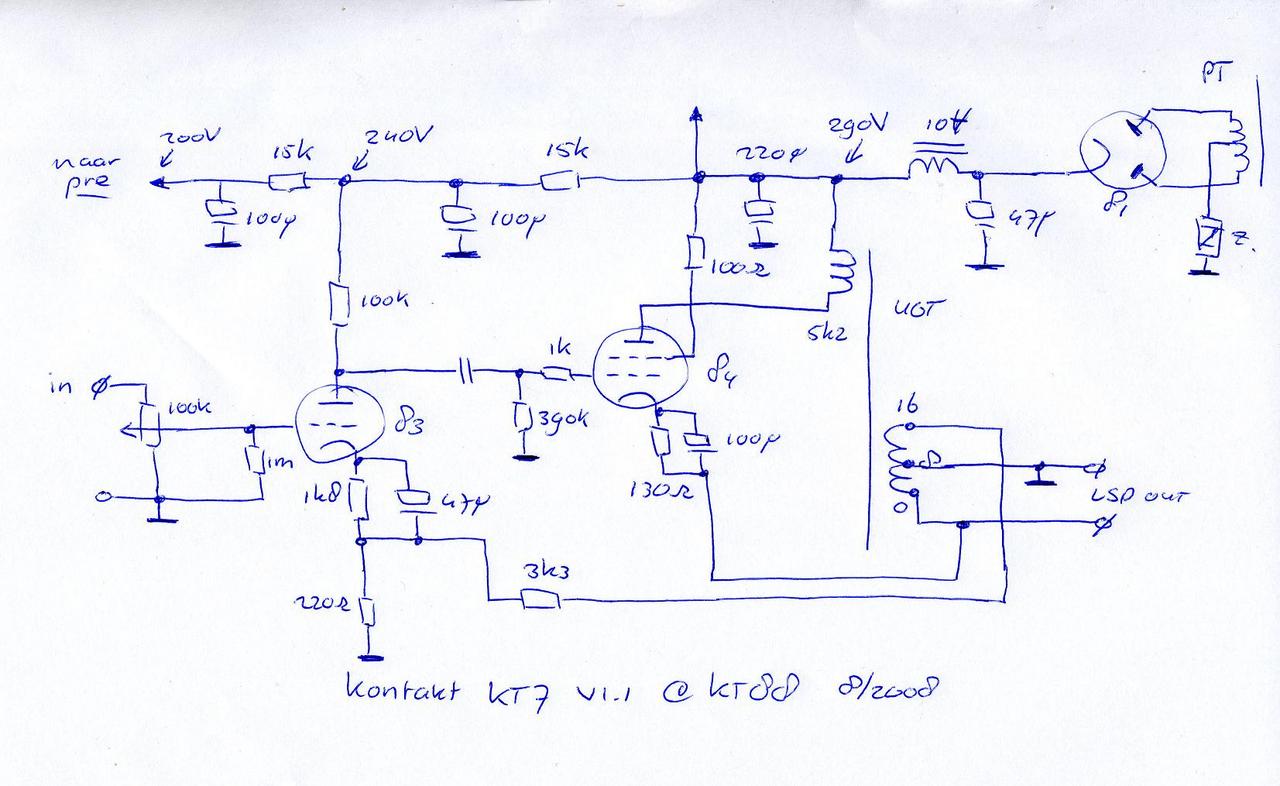 PT
200V
240V
290V
10H
15k
15k
220µ
naar
pre
100µ
100µ
47µ
81
Z.
100Ω
100k
UGT
5k2
1k
84
in
100k
83
390k
16
1m
100µ
8
1k8
47µ
130Ω
LSP OUT
0
3k3
220Ω
Kontakt KT7 V1.1 @ KT88 8/2008